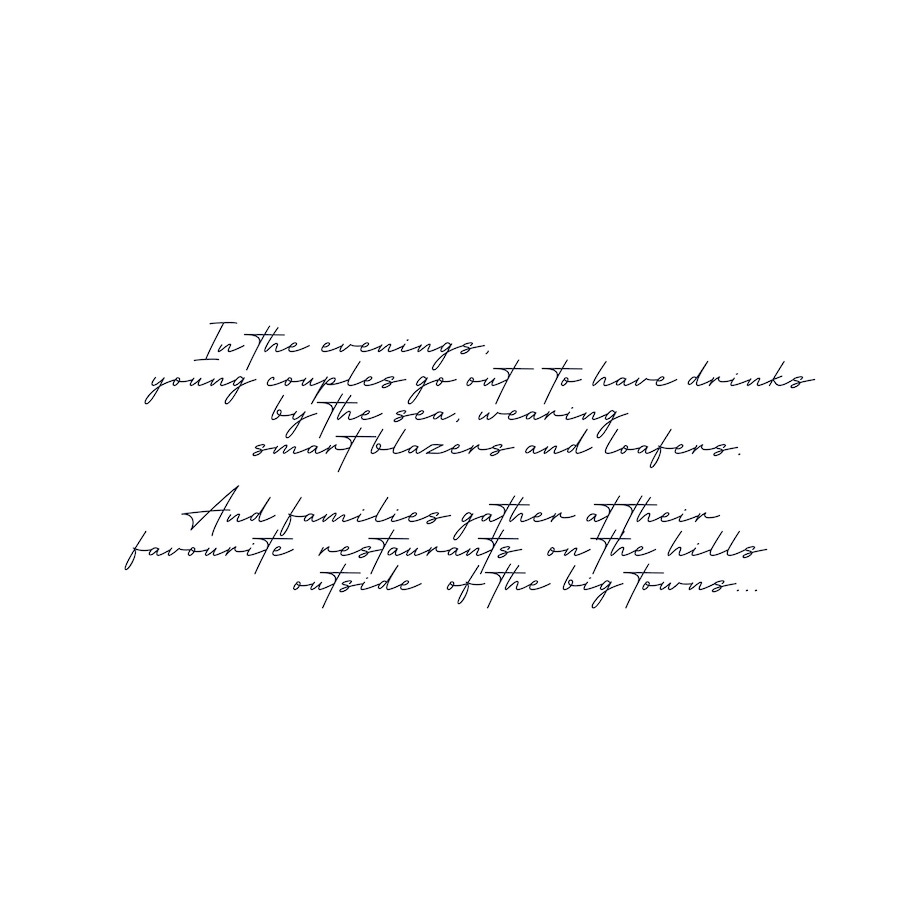 In the evenings,
young couples go out to have drinks
by the sea, wearing
smart blazers and loafers.
And families gather at their
favourite restaurants on the hills
outside of the big towns...